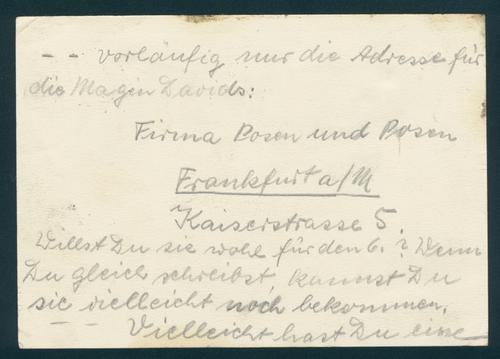 - - vorläufig nur die Adresse für
die Magen Davids:
Firma Posen und Posen
Frankfurt a/M
Kaiserstrasse 5.
Willst Du sie wohl für den 6.? Wenn
Du gleich schreibst, kannst Du
sie vielleicht noch bekommen.
- - Vielleicht hast Du eine